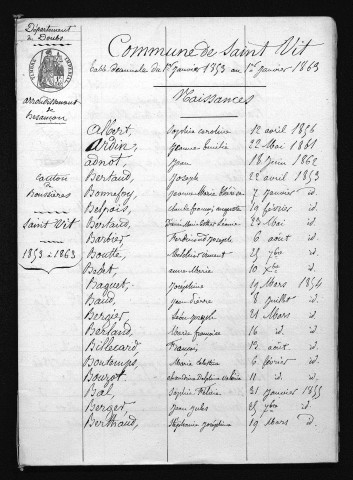 Département
du Doubs
arrondissement
de
Besançon
canton
de
Boussières
Saint Vit
1853 à 1863
Commune de Saint Vit
Table Décennale du 1er janvier 1853 au 1er janvier 1863
Naissances
Albert, Sophie Caroline 12 avril 1856
Ardin, Jeanne Emilie 22 Mai 1861
adnot, Jean 18 Juin 1862
Bertaud, Joseph 22 avril 1853
Bonnefoy, Jeanne Marie 7 janvier id.
Belpois, Claude françois auguste 19 février id.
Bertaud, 23 Mai id.
Barbier, Ferdinand Joseph 6 août id.
Boutte, 25 7bre id.
Bobet, anne Marie 10 Xbre id.
Baguet, Joséphine 19 Mars 1854
Baud, Jean Pierre 8 Juillet id.
Bergier, Joseph 21 Mars id.
Berland, Marie françoise 16 id. id.
Billecard, François 12 août id.
Bontemps, Marie Célestine 6 février id.
Bouzot, Delphine 11 id. id.
Bal, Sophie 21 janvier 1855
Berger, Jean Jules 25 id.
Berthaud, Stéphanie Joséphine 19 Mars id.